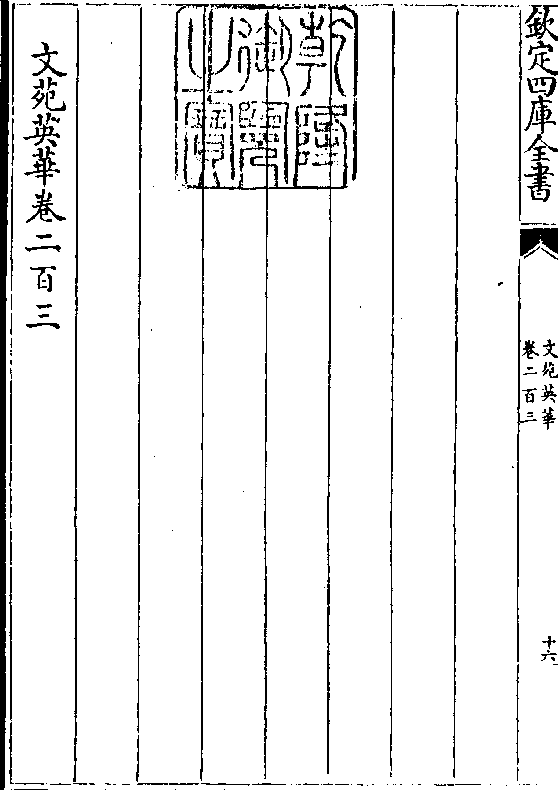 欽定四庫全書
文苑英華
卷二百三
十六
乾隆
御覽
之寶
文苑英華卷二百三